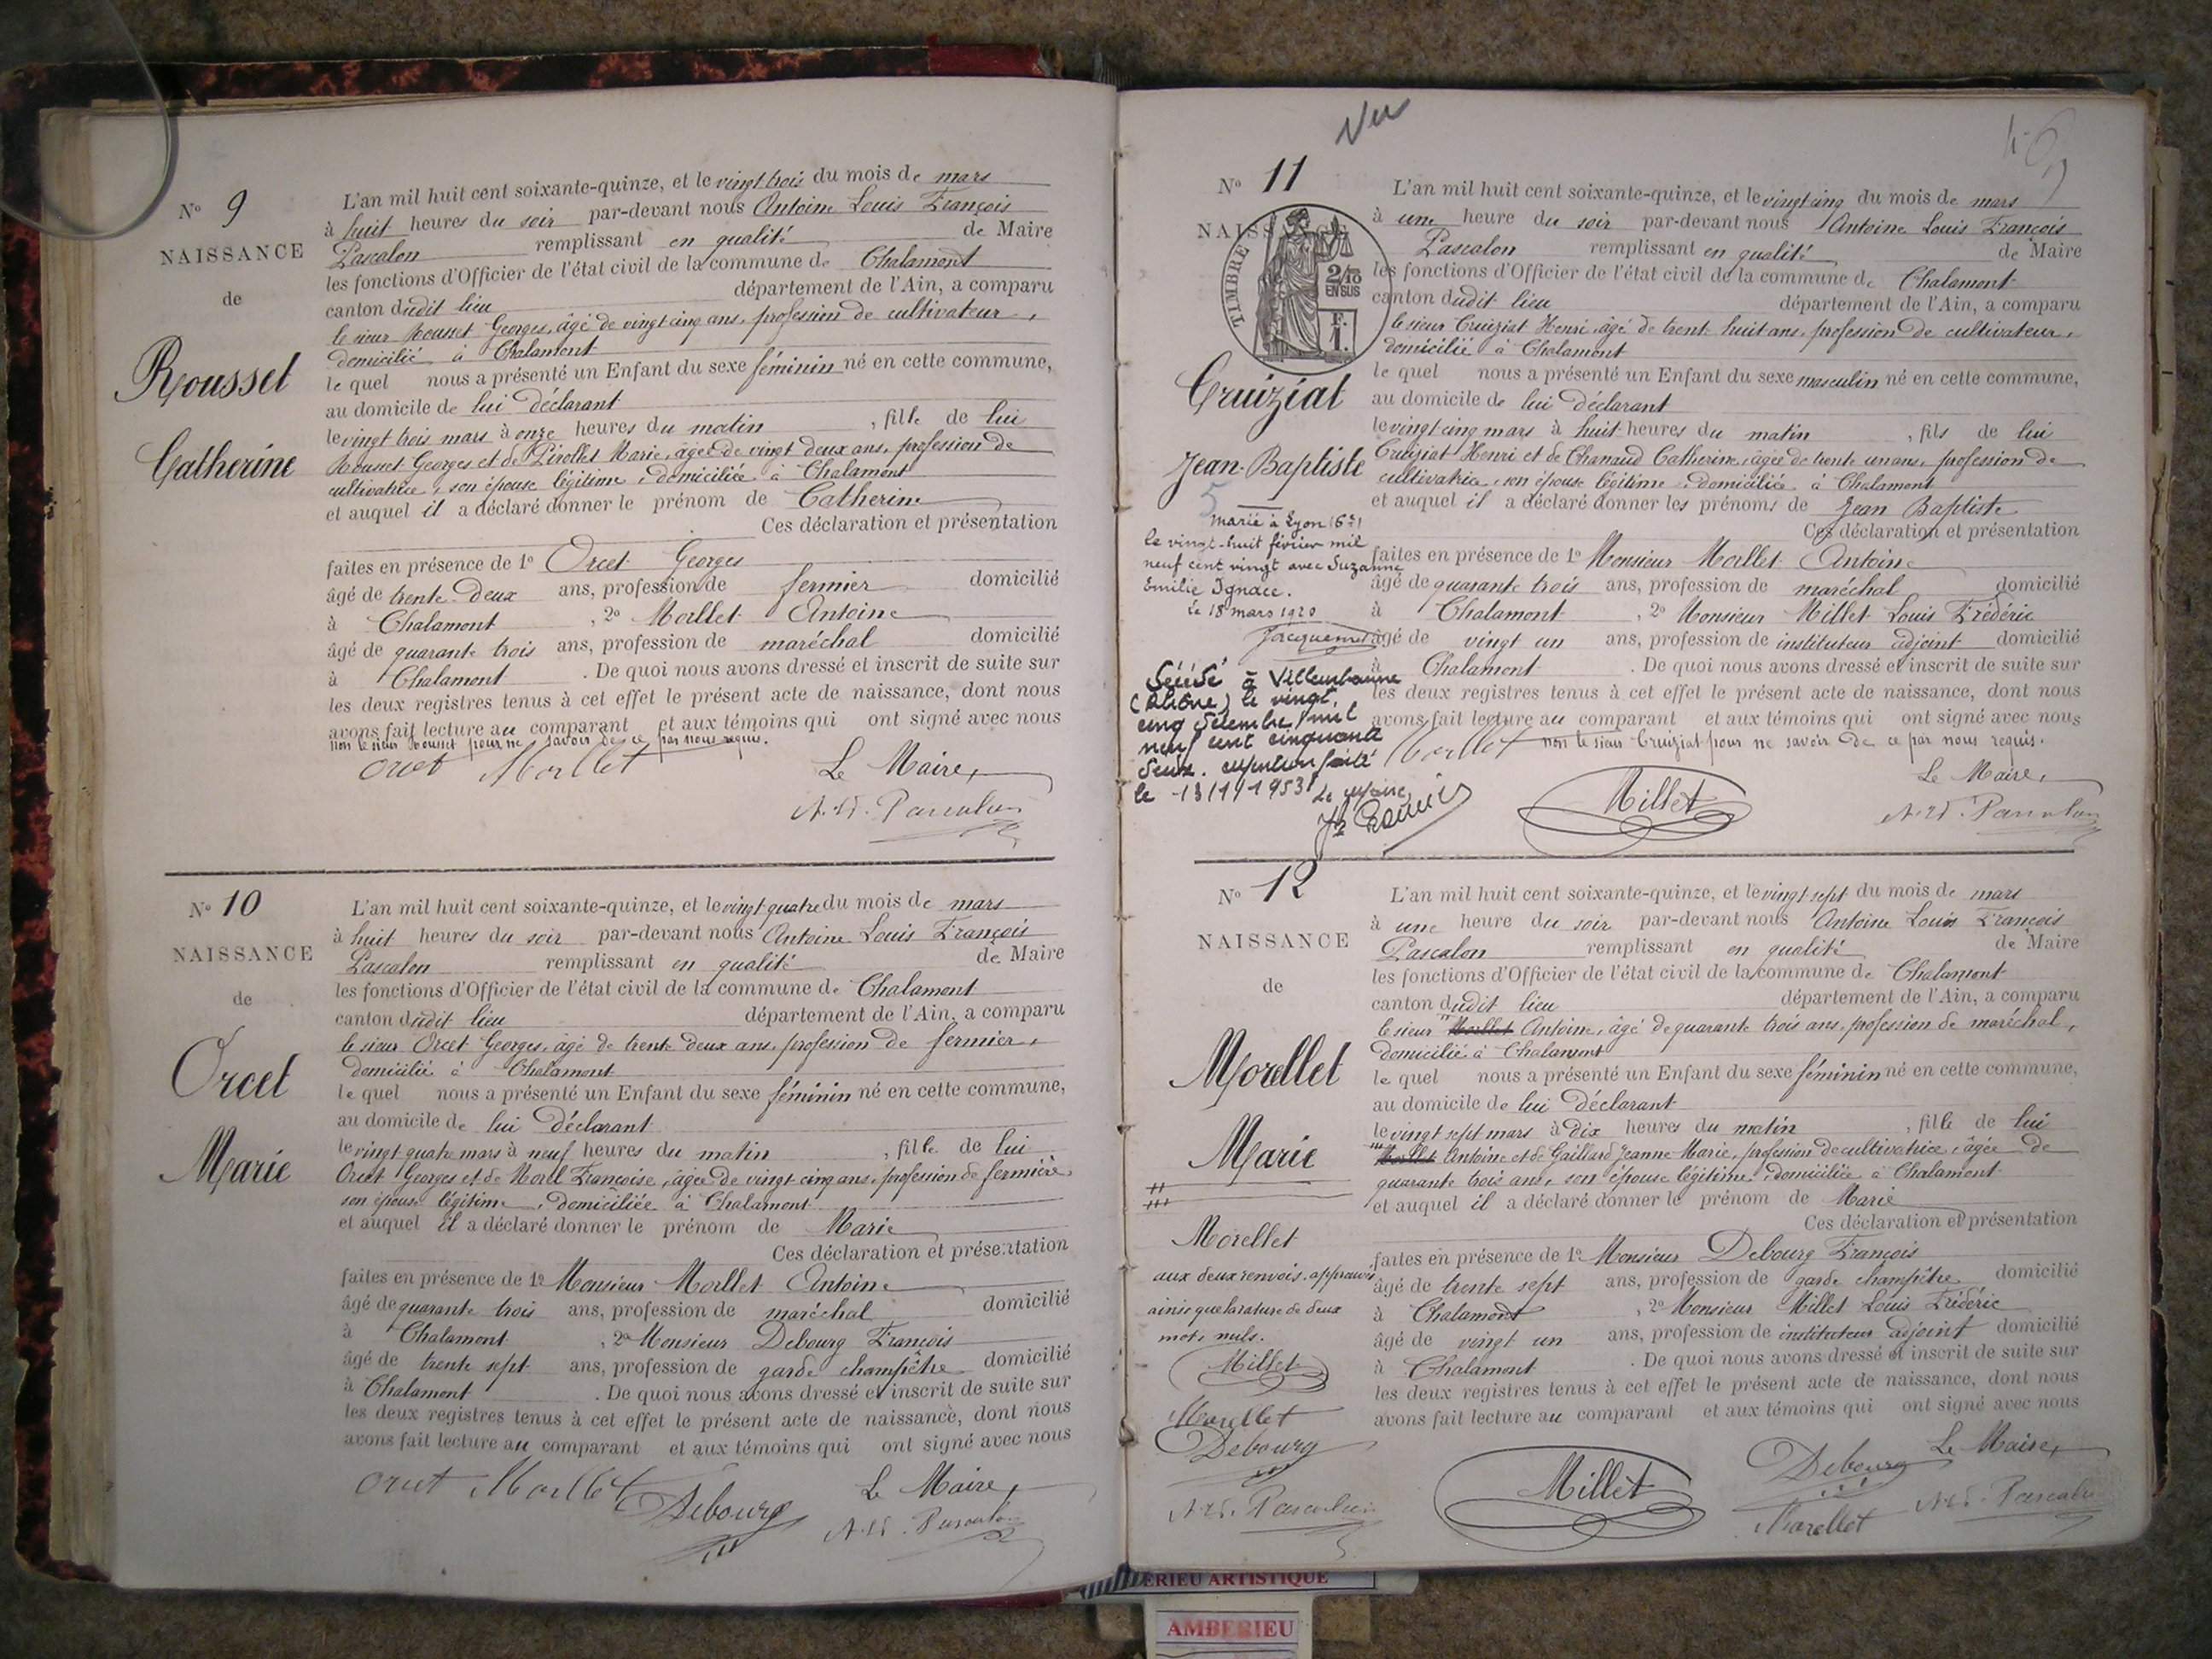 N° 9
NAISSANCE
de
Rousset
Catherine
L'an mil huit cent soixante-quinze, et le vingt trois du mois de mars
à huit heures du soir par-devant nous Antoine Louis François
Pascalon remplissant en qualité de Maire
les fonctions d'Officier de l'état civil de la commune de Chalamont
canton dudit lieu département de l'Ain, a comparu
le sieur Rousset Georges, âgé de vingt cinq ans, profession de cultivateur,
domicilié à Chalamont
le quel nous a présenté un Enfant du sexe féminin né en cette commune,
au domicile de lui déclarant
le vingt trois mars à onze heures du matin, fille de lui
Rousset Georges et de Pirollet Marie, âgée de vingt deux ans, profession de
cultivatrice, son épouse légitime, domiciliée à Chalamont
et auquel il a déclaré donner le prénom de Catherine
Ces déclaration et présentation
faites en présence de 1° Orcet Georges
âgé de trente deux ans, profession de fermier domicilié
à Chalamont, 2° Morllet Antoine
âgé de quarante trois ans, profession de maréchal domicilié
à Chalamont. De quoi nous avons dressé et inscrit de suite sur
les deux registres tenus à cet effet le présent acte de naissance, dont nous
avons fait lecture au comparant et aux témoins qui ont signé avec nous
non le sieur Rousset pour ne savoir de ce par nous requis.
Orcet Morllet Le Maire,
A. L. F. Pascalon
N° 10
NAISSANCE
de
Orcet
Marie
L'an mil huit cent soixante-quinze, et le vingt quatre du mois de mars
à huit heures du soir par-devant nous Antoine Louis François
Pascalon remplissant en qualité de Maire
les fonctions d'Officier de l'état civil de la commune de Chalamont
canton dudit lieu département de l'Ain, a comparu
le sieur Orcet Georges, âgé de trente deux ans, profession de fermier,
domicilié à Chalamont
le quel nous a présenté un Enfant du sexe féminin né en cette commune,
au domicile de lui déclarant
le vingt quatre mars à neuf heures du matin, fille de lui
Orcet Georges et de Morll Françoise, âgée de vingt cinq ans, profession de fermière,
son épouse légitime, domiciliée à Chalamont
et auquel il a déclaré donner le prénom de Marie
Ces déclaration et présentation
faites en présence de 1° Monsieur Morllet Antoine
âgé de quarante trois ans, profession de maréchal domicilié
à Chalamont, 2° Monsieur Debourg François
âgé de trente sept ans, profession de garde champêtre domicilié
à Chalamont. De quoi nous avons dressé et inscrit de suite sur
les deux registres tenus à cet effet le présent acte de naissance, dont nous
avons fait lecture au comparant et aux témoins qui ont signé avec nous
Orcet Morllet Debourg Le Maire,
A. L. F. Pascalon
Vu
N° 11
NAISSANCE
TIMBRE
2/10
EN SUS
F.
1.
Cruiziat
Jean-Baptiste
5
Marié à Lyon (6e)
le vingt-huit février mil
neuf cent vingt avec Suzanne
Emilie Ignace.
Le 18 mars 1920
Jacquemet
Décédé à Villeurbanne
(Rhône) le vingt,
cinq décembre mil
neuf cent cinquante
deux. mention faite
le 13/1/1953 Le Maire,
L'an mil huit cent soixante-quinze, et le vingt cinq du mois de mars
à une heure du soir par-devant nous Antoine Louis François
Pascalon remplissant en qualité de Maire
les fonctions d'Officier de l'état civil de la commune de Chalamont
canton dudit lieu département de l'Ain, a comparu
le sieur Cruiziat Henri, âgé de trent huit ans, profession de cultivateur,
domicilié à Chalamont
le quel nous a présenté un Enfant du sexe masculin né en cette commune,
au domicile de lui déclarant
le vingt cinq mars à huit heures du matin, fils de lui
Cruiziat Henri et de Chanaud Catherine, âgée de trente un ans, profession de
cultivatrice, son épouse légitime, domiciliée à Chalamont
et auquel il a déclaré donner les prénoms de Jean Baptiste
Ces déclaration et présentation
faites en présence de 1° Monsieur Morllet Antoine
âgé de quarante trois ans, profession de maréchal domicilié
à Chalamont, 2° Monsieur Millet Louis Frédéric
âgé de vingt un ans, profession de instituteur adjoint domicilié
à Chalamont. De quoi nous avons dressé et inscrit de suite sur
les deux registres tenus à cet effet le présent acte de naissance, dont nous
avons fait lecture au comparant et aux témoins qui ont signé avec nous
Morllet non le sieur Cruiziat pour ne savoir de ce par nous requis.
Millet Le Maire,
A. L. F. Pascalon
N° 12
NAISSANCE
de
Morellet
Marie
Morellet
aux deux renvois. approuvés
ainsi que la rature de deux
mots nuls.
Millet
Morellet
Debourg
A. L. F. Pascalon
L'an mil huit cent soixante-quinze, et le vingt sept du mois de mars
à une heure du soir par-devant nous Antoine Louis François
Pascalon remplissant en qualité de Maire
les fonctions d'Officier de l'état civil de la commune de Chalamont
canton dudit lieu département de l'Ain, a comparu
le sieur Morllet Antoine, âgé de quarante trois ans, profession de maréchal,
domicilié à Chalamont
le quel nous a présenté un Enfant du sexe féminin né en cette commune,
au domicile de lui déclarant
le vingt sept mars à dix heures du matin, fille de lui
Morllet Antoine et de Gaillard Jeanne Marie, profession de cultivatrice, âgée de
quarante trois ans, son épouse légitime, domiciliée à Chalamont
et auquel il a déclaré donner le prénom de Marie
Ces déclaration et présentation
faites en présence de 1° Monsieur Debourg François
âgé de trente sept ans, profession de garde champêtre domicilié
à Chalamont, 2° Monsieur Millet Louis Frédéric
âgé de vingt un ans, profession de instituteur adjoint domicilié
à Chalamont. De quoi nous avons dressé et inscrit de suite sur
les deux registres tenus à cet effet le présent acte de naissance, dont nous
avons fait lecture au comparant et aux témoins qui ont signé avec nous
Millet Debourg Le Maire,
Morellet A. L. F. Pascalon
ERIEU ARTISTIQUE
AMBERIEU